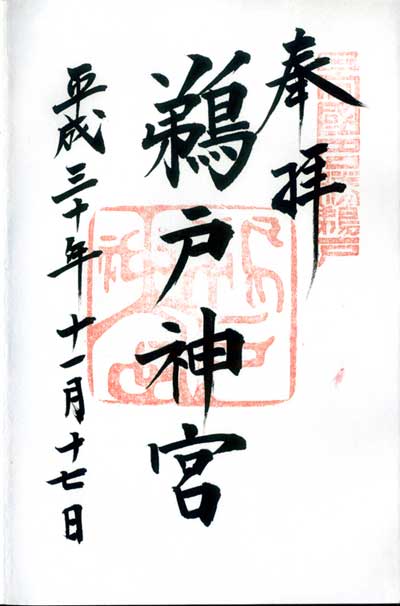 奉拝
鵜戸神宮
平成三十年十一月十七日